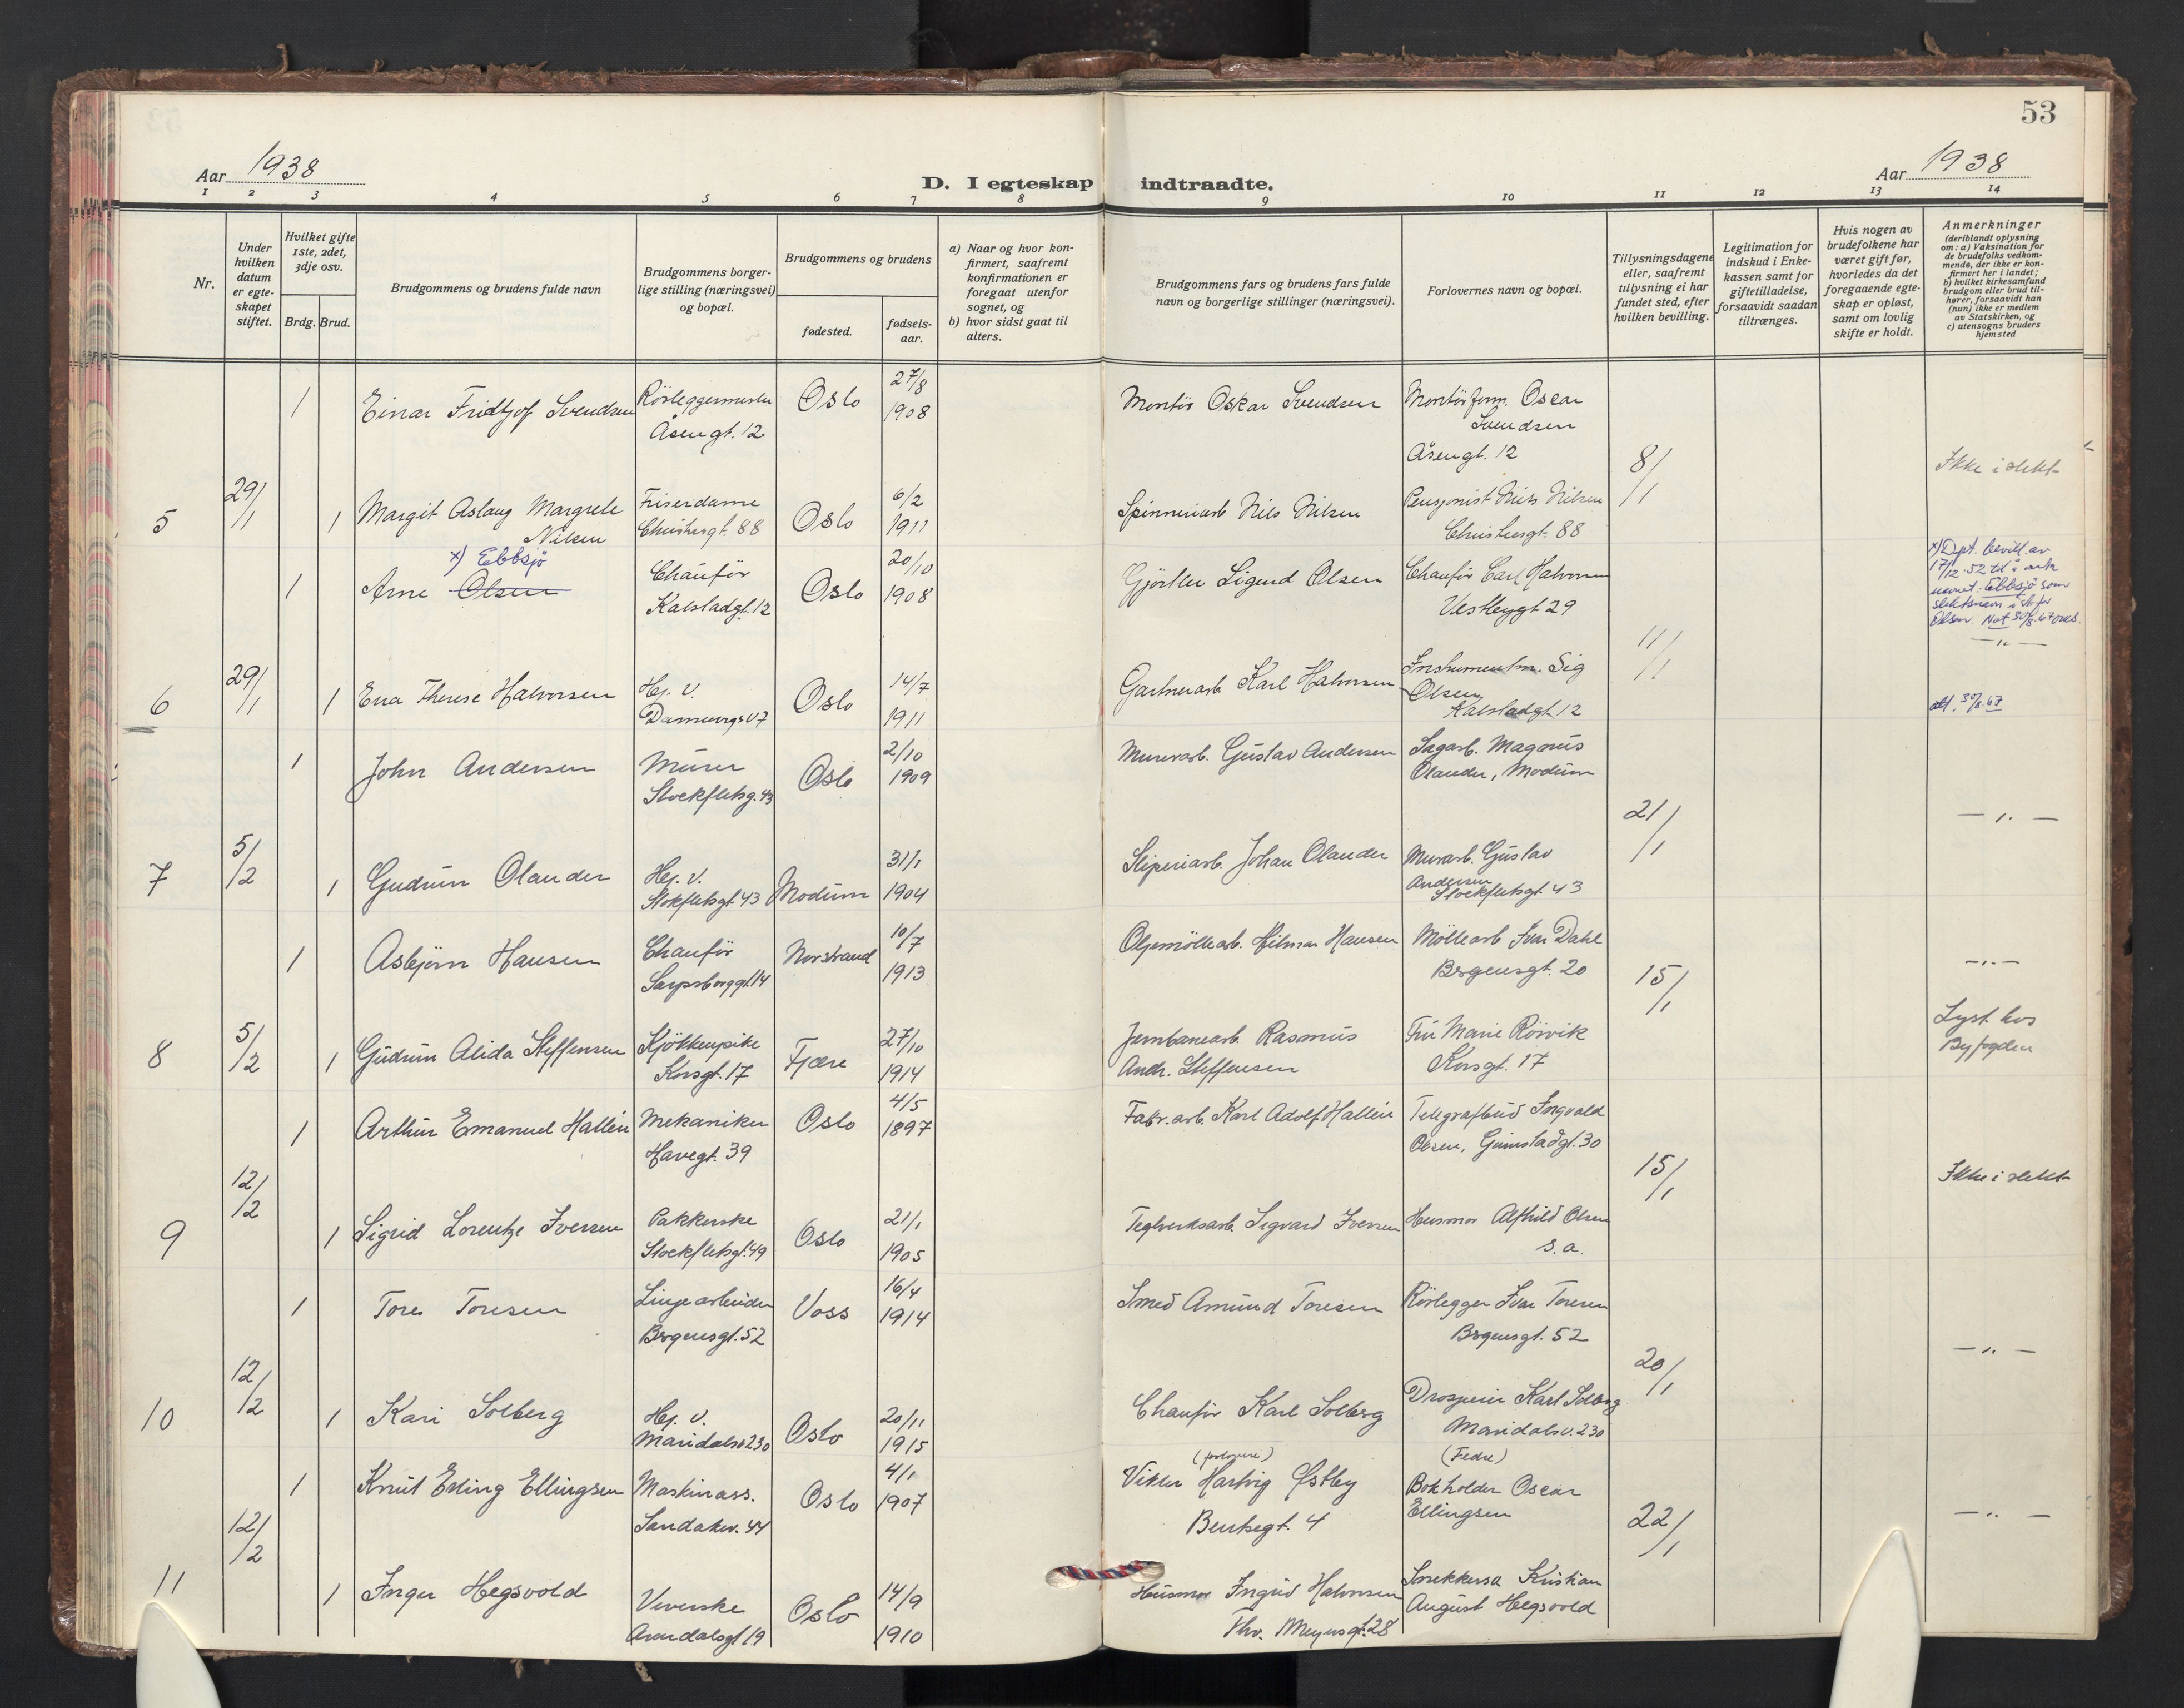 53
Aar 1938
D. I egteskap indtraadte.
Aar 1938
1 2 3 4 5 6 7 8 9 10 11 12 13 14
Nr.
Under hvilken datum er egteskapet stiftet.
Hvilket gifte 1ste, 2det, 3dje osv.
Brdg. Brud.
Brudgommens og brudens fulde navn
Brudgommens borgerlige stilling (næringsvei) og bopæl.
Brudgommens og brudens
fødested.
fødselsaar.
a) Naar og hvor konfirmert, saafremt konfirmationen er foregaat utenfor sognet, og
b) hvor sidst gaat til alters.
Brudgommens fars og brudens fars fulde navn og borgerlige stillinger (næringsvei).
Forlovernes navn og bopæl.
Tillysningsdagene eller, saafremt tillysning ei har fundet sted, efter hvilken bevilling.
Legitimation for indskud i Enkekassen samt for giftetilladelse, forsaavidt saadan tiltrænges.
Hvis nogen av brudefolkene har været gift før, hvorledes da det foregaaende egteskap er opløst, samt om lovlig skifte er holdt.
Anmerkninger
(deriblandt oplysning om: a) Vaksination for de brudefolks vedkommende, der ikke er konfirmert her i landet; b) hvilket kirkesamfund brudgom eller brud tilhører, forsaavidt han (hun) ikke er medlem av Statskirken, og c) utensogns bruders hjemsted
1 Einar Fridtjof Svendsen Rörleggermester Åsengt. 12 Oslo 27/8 1908 Montör Oskar Svendsen Montörform. Oscar Svendsen Åsengt. 12 8/1 Ikke i slekt
5 29/1 1 Margit Aslaug Margrete Nilsen Friserdame Christiesgt. 88 Oslo 6/2 1911 Spinneriarb Nils Nilsen Pensjonist Nils Nilsen Christiesgt. 88
1 Arne Olsen x) Ebbsjö Chauför Kalstadgt. 12 Oslo 20/10 1908 Gjörtler Sigurd Olsen Chauför Carl Halvorsen Vestbygt 29
x) Dpt. bevill. av
17/12.52 til å anta
navnet: Ebbsjö som
slektsnavn i st. for
Olsen. Not 30/8.67
6 29/1 1 Eva Therese Halvorsen Hj. v. Oslo 14/7 1911 Gartnerarb Karl Halvorsen Instrumentm. Sig Olsen Kalstadgt 12 11/1 — " —
att. 30/8.67
1 John Andersen Murer Stockfletsg. 43 Oslo 2/10 1909 Murerarb. Gustav Andersen Sagarb. Magnus Olander, Modum 21/1 — " —
7 5/2 1 Gudrun Olander Hj. v. Stokfletsgt. 43 Modum 31/1 1904 Sliperiarb. Johan Olander Murarb. Gustav Andersen Stockfletsgt. 43
1 Asbjörn Hansen Chauför Sarpsborggt. 14 Norstrand 10/7 1913 Oljemöllearb. Hilmar Hansen Möllearb Ivar Dahl Bergensgt. 20 15/1 — " —
8 5/2 1 Gudrun Alida Steffensen Kjökkenpike Korsgt. 17 Fjære 27/10 1914 Jernbanearb. Rasmus Andr. Steffensen Fru Marie Rörvik Korsgt. 17 Lyst hos Byfogden
1 Arthur Emanuel Hallén Mekaniker Havegt. 39 Oslo 4/5 1897 Fabr. arb. Karl Adolf Hallén Telegrafbud Ingvald Olsen, Grimstadgt. 30 15/1 Ikke i slekt
9 12/2 1 Sigrid Lorentze Iversen Pakkerske Stockfletsgt. 49 Oslo 21/1 1905 Teglverksarb. Sigvard Iversen Husmor Alfhild Olsen s. a.
1 Tore Toresen Linjearbeider Bergensgt. 52 Voss 16/4 1914 Smed Amund Toresen Rörlegger Ivar Toresen Bergensgt. 52 20/1 — " —
10 12/2 1 Kari Solberg Hj. v. Maridalsv 230 Oslo 20/11 1915 Chauför Karl Solberg Drosjeeier Karl Solberg Maridalsv. 230
1 Knut Erling Ellingsen Maskinass. Sandakerv. 44 Oslo 4/1 1907 (forlovere) Viktor Hartvig Østby Bentsegt. 4 (Fedre) Bokholder Oscar Ellingsen 22/1 — " —
11 12/2 1 Inger Hegsvold Veverske Arendalsgt 19 Oslo 14/9 1910 Husmor Ingrid Halvorsen Thv. Meyersgt. 28 Snekkers. Kristian August Hegsvold